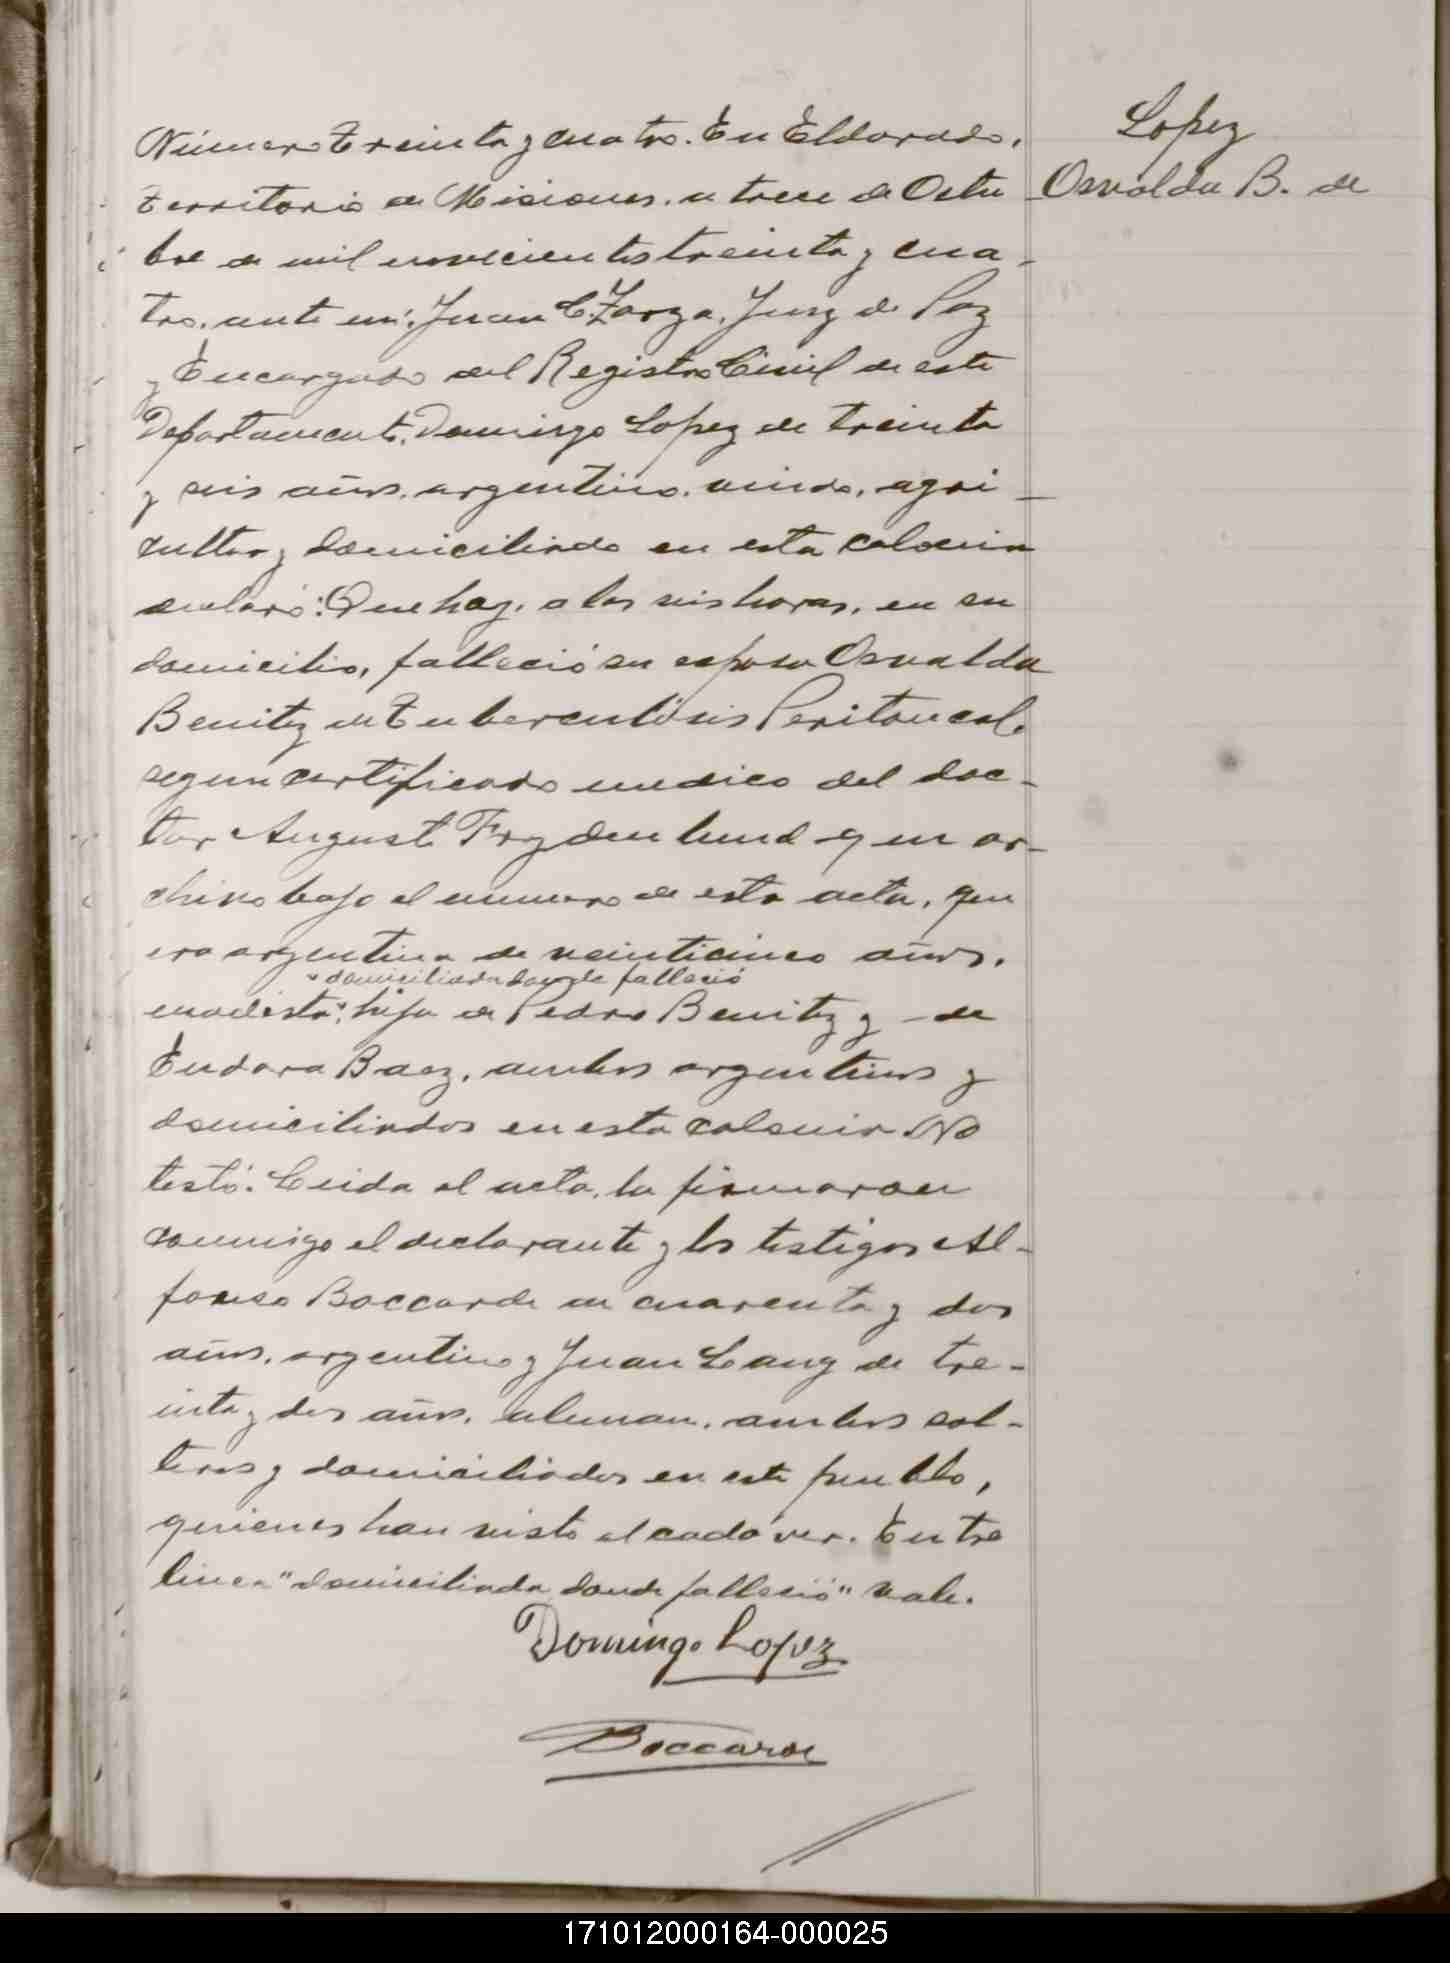 Número Treinta y cuatro. En Eldorado,
Territorio de Misiones, a trece de Octu
bre de mil novecientos treinta y cua-
tro, ante mí: Juan C. Zarza, Juez de Paz
y Encargado del Registro Civil de este
Departamento, Domingo Lopez de treinta
y seis años, argentino, viudo, agri-
cultor y domiciliado en esta colonia
declaró: Que hoy, a las seis horas, en su
domicilio, falleció su esposa Osvalda
Benitez de Tuberculosis Peritoneal,
segun certificado medico del doc-
tor August Frydenlund que ar-
chivo bajo el numero de esta acta, que
era argentina de veinticinco años,
" domiciliada donde falleció
modista, hija de Pedro Benitez y de
Eudora Baez, ambos argentinos y
domiciliados en esta colonia. No
testó. Leida el acta, la firmaron
conmigo el declarante y los testigos Al-
fonso Boccarde de cuarenta y dos
años, argentino y Juan Lang de tre-
inta y dos años, aleman, ambos sol-
teros y domiciliados en este pueblo,
quienes han visto el cadáver. Entre
linea "domiciliada donde falleció" vale.
Domingo Lopez
Boccarde
Lopez
Osvalda B. de
171012000164-000025